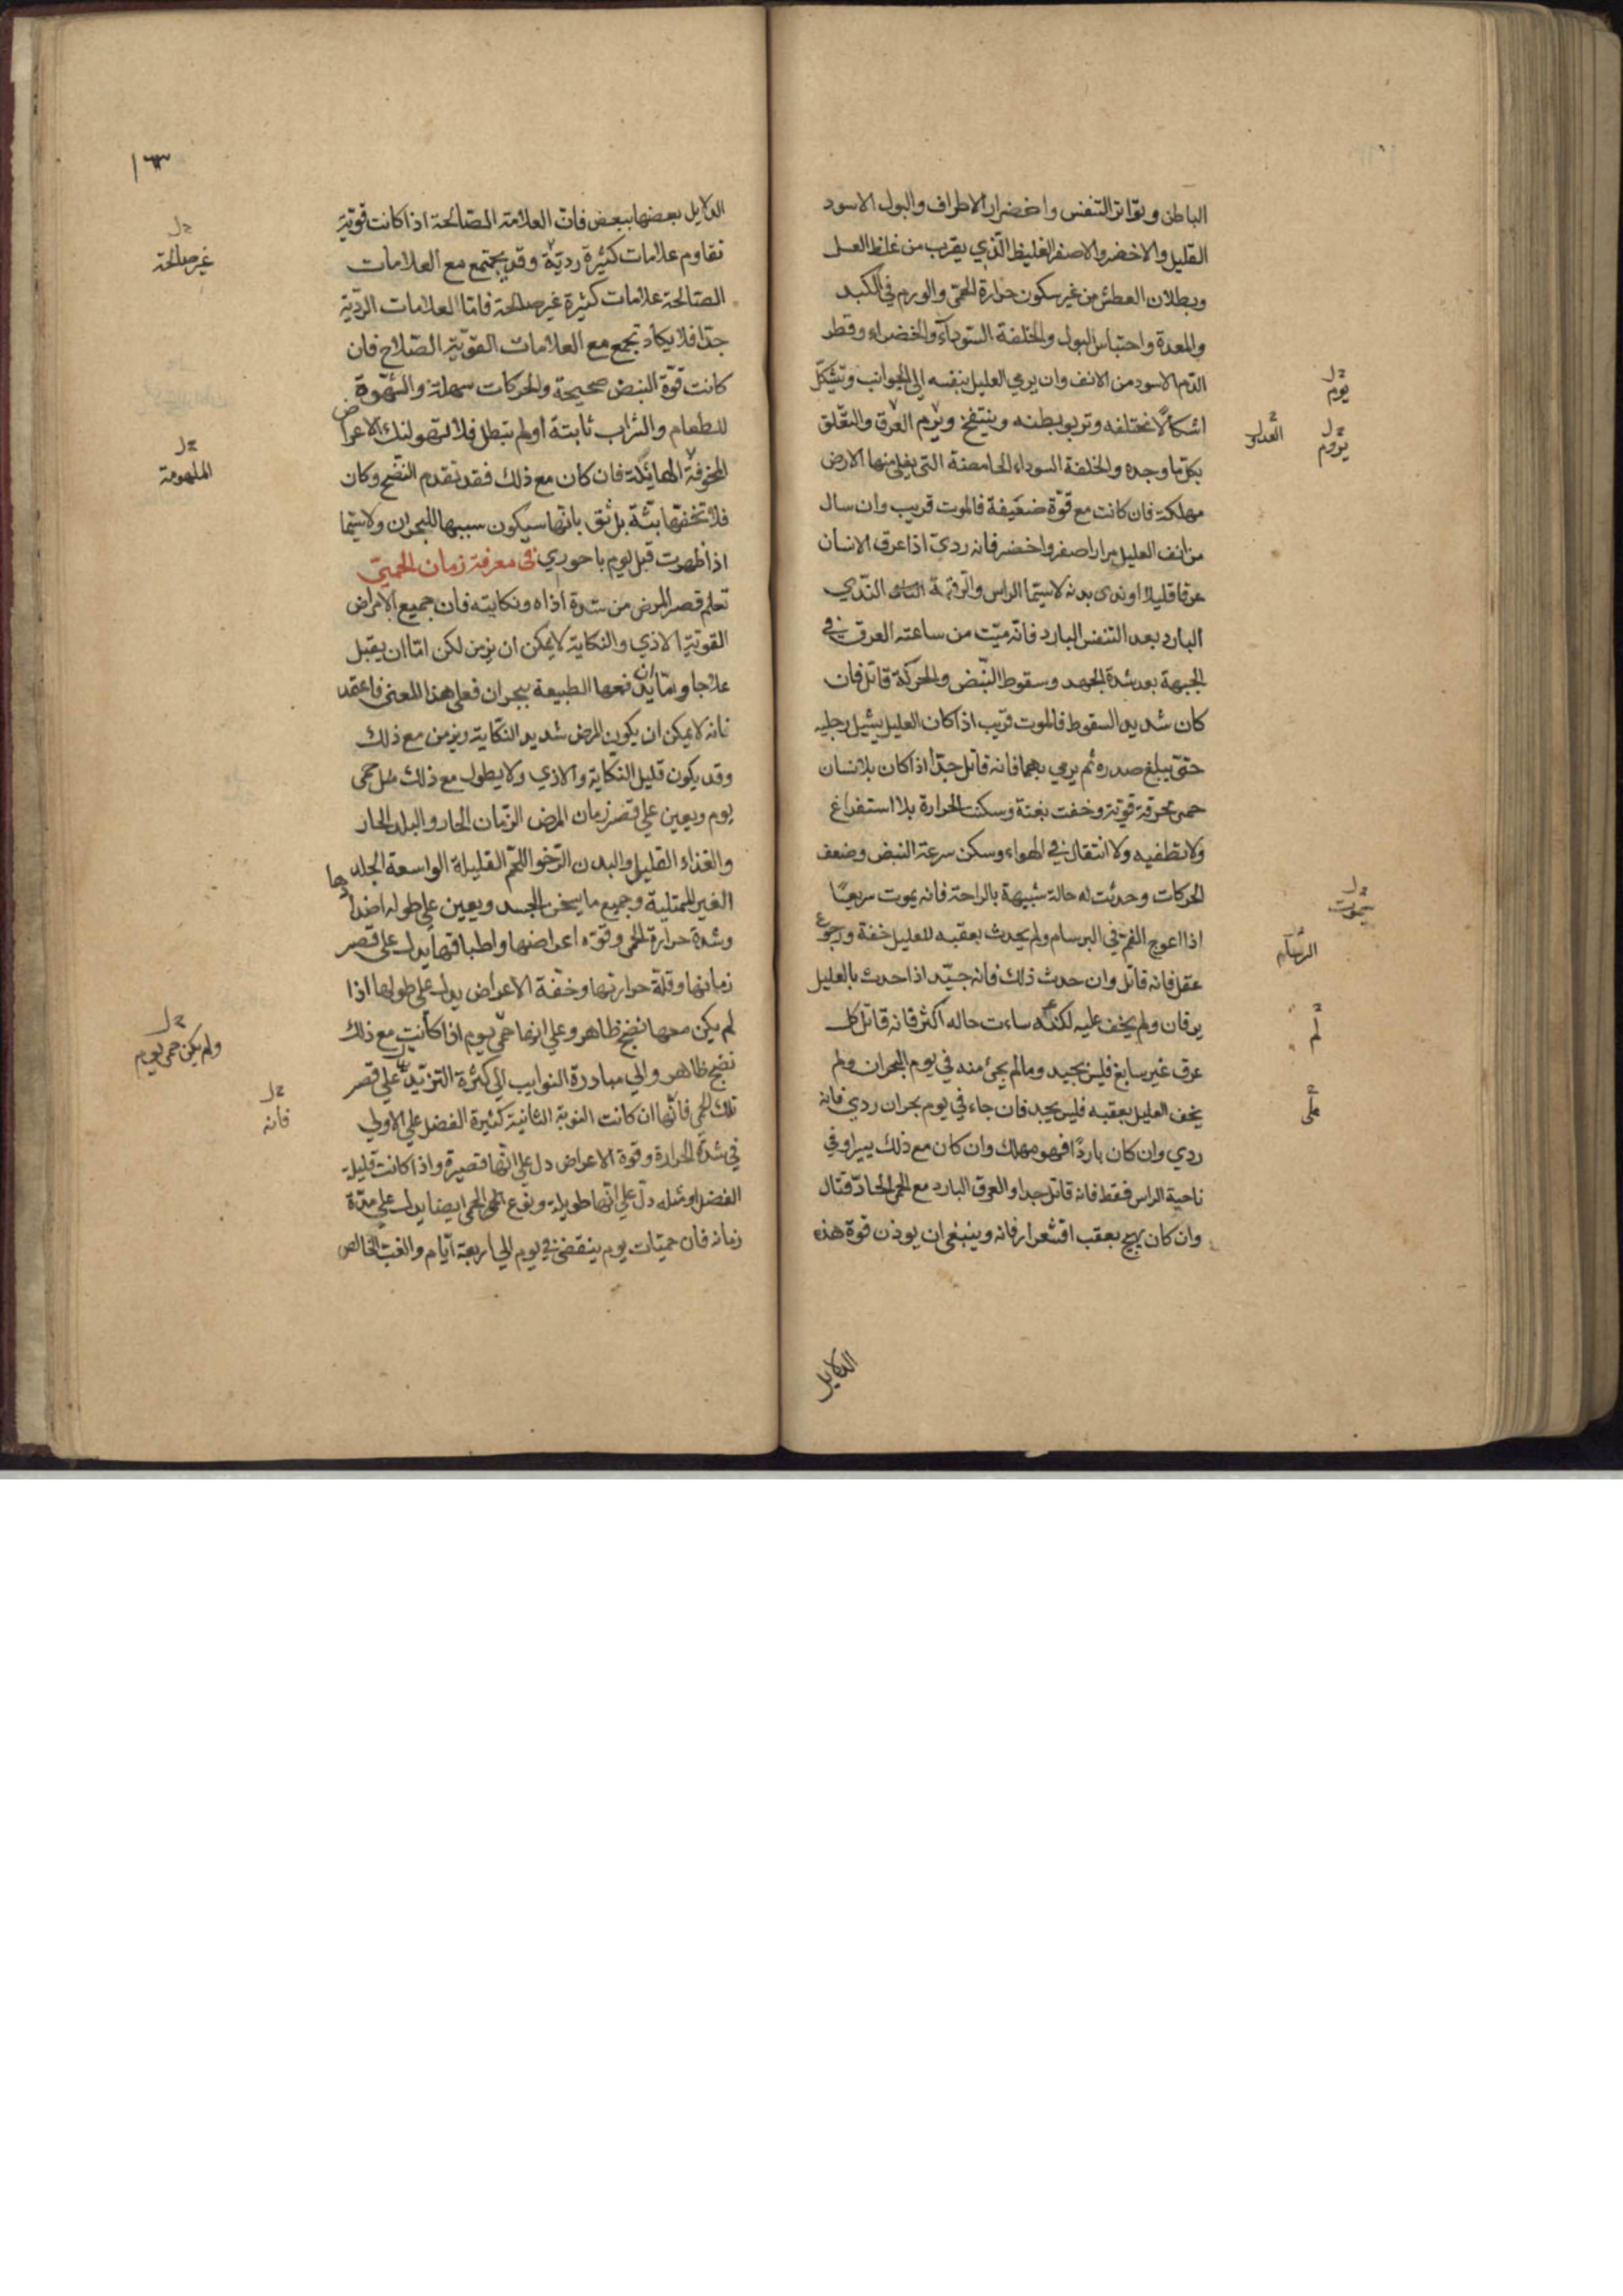 الباطن وتواتر التنفس واخضرار الاطراف والبول الاسود
القليل والاخضر والاصفر الغليظ الذي يقرب من غلظ العسل
وبطلان العطش من غير سكون حرارة الحمى والورم في الكبد
والمعدة واحتباس البول والخلفة السوداء والخضراء وقطر
الدم الاسود من الانف وان يرمي العليل بنفسه الى الجوانب ويتشكل
اشكالا مختلفه وتربو بطنه وينتفخ ويرم العرق والتعلق
بكل ما وجده والخلفة السوداء الحامضة التي يغلي منها الارض
مهلكة فان كانت مع قوة ضعيفة فالموت قريب وان سال
من انف العليل مرار اصفر واخضر فانه ردي اذا عرق الانسان
عرقا قليلا او ندى بدنه لاسيما الراس والرقبة الندي
البارد بعد التنفس البارد فانه ميت من ساعته العرق في
الجبهة بعد شدة الجهد وسقوط النبض والحركة قاتل فان
كان شديد السقوط فالموت قريب اذا كان العليل يشيل رجليه
حتى يبلغ صدره ثم يرمي بهما فانه قاتل جدا اذا كان بلانسان
حمى محرقة قوية وخفت بغتة وسكنت الحرارة بلا استفراغ
ولا تطفيه ولا انتقال في الهواء وسكن سرعة النبض وضعف
الحركات وحدثت له حالة شبيهة بالراحة فانه يموت سريعا
اذا اعوج الفم في البرسام ولم يحدث بعقبه للعليل خفة ورجوع
عقل فانه قاتل وان حدث ذلك فانه جيد اذا حدث بالعليل
يرقان ولم يخف عليه لكنه ساءت حاله اكثر فانه قاتل كل
عرق غير سابغ فليس بجيد وما لم يجئ منه في يوم البحران ولم
يخف العليل بعقبه فليس بجيد فان جاء في يوم بحران ردي فانه
ردي وان كان باردا فهو مهلك وان كان مع ذلك يسيرا وفي
ناحية الراس فقط فانه قاتل جدا والعرق البارد مع الحمى الحادة قتال
وان كان يهيج بعقب اقشعرار فانه وينبغي ان يوذن قوة هذه
الدلايل
يوم
يروم
لم
على
١٦٣
الدلايل بعضها ببعض فان العلامة الصالحة اذا كانت قوية
تقاوم علامات كثيرة ردية وقد يجتمع مع العلامات
الصالحة علامات كثيرة غير صالحة فاما العلامات الردية
جدا فلا يكاد تجمع مع العلامات القوية الصلاح فان
كانت قوة النبض صحيحة والحركات سهلة والشهوة
للطعام والشراب ثابتة او لم تبطل فلا تهولنك الاعراض
المخوفة الهائلة فان كان مع ذلك فقد تقدم النضج وكان
فلا تخفها بتة بل ثق بانها سيكون سببها للبحران ولاسيما
اذا ظهرت قبل يوم باحوري في معرفة زمان الحمى
تعلم قصر المرض من شدة اذاه ونكايته فان جميع الامراض
القوية الاذي والنكاية لا يمكن ان يزمن لكن اما ان يقبل
علاجا واما ان يدفعها الطبيعة ببحران فعلى هذا المعنى فاعتمد
فانه لا يمكن ان يكون المرض شديد النكاية ويزمن مع ذلك
وقد يكون قليل النكاية والاذي ولا يطول مع ذلك مثل حمى
يوم ويعين على قصر زمان المرض الزمان الحار والبلد الحار
والغذاء القليل والبدن الرخو اللحم القليلة الواسعة الجلد
الغير الممتلية وجميع ما يسخن الجسد ويعين على طوله اضدادها
وشدة حرارة الحمى وقوة اعراضها واطباقها يدل على قصر
زمانها وقلة حرارتها وخفة الاعراض يدل على طولها اذا
لم يكن معها نضج ظاهر وعلى انها حمى يوم اذا كانت مع ذلك
نضج ظاهر والي مبادرة النوايب الي كثرة التزيد على قصر
تلك الحمى فانها ان كانت النوبة الثانية كثيرة الفضل على الاولي
في شدة الحرارة وقوة الاعراض دل على انها قصيرة واذا كانت قليلة
الفضل او مثله دل على انها طويلة ونوع الحمى ايضا يدل على مدة
زمانه فان حميات يوم ينقضي في يوم الي اربعة ايام والغب الخالص
غير صالحة
الملهومة
ولم يكن حمى يوم
فانه